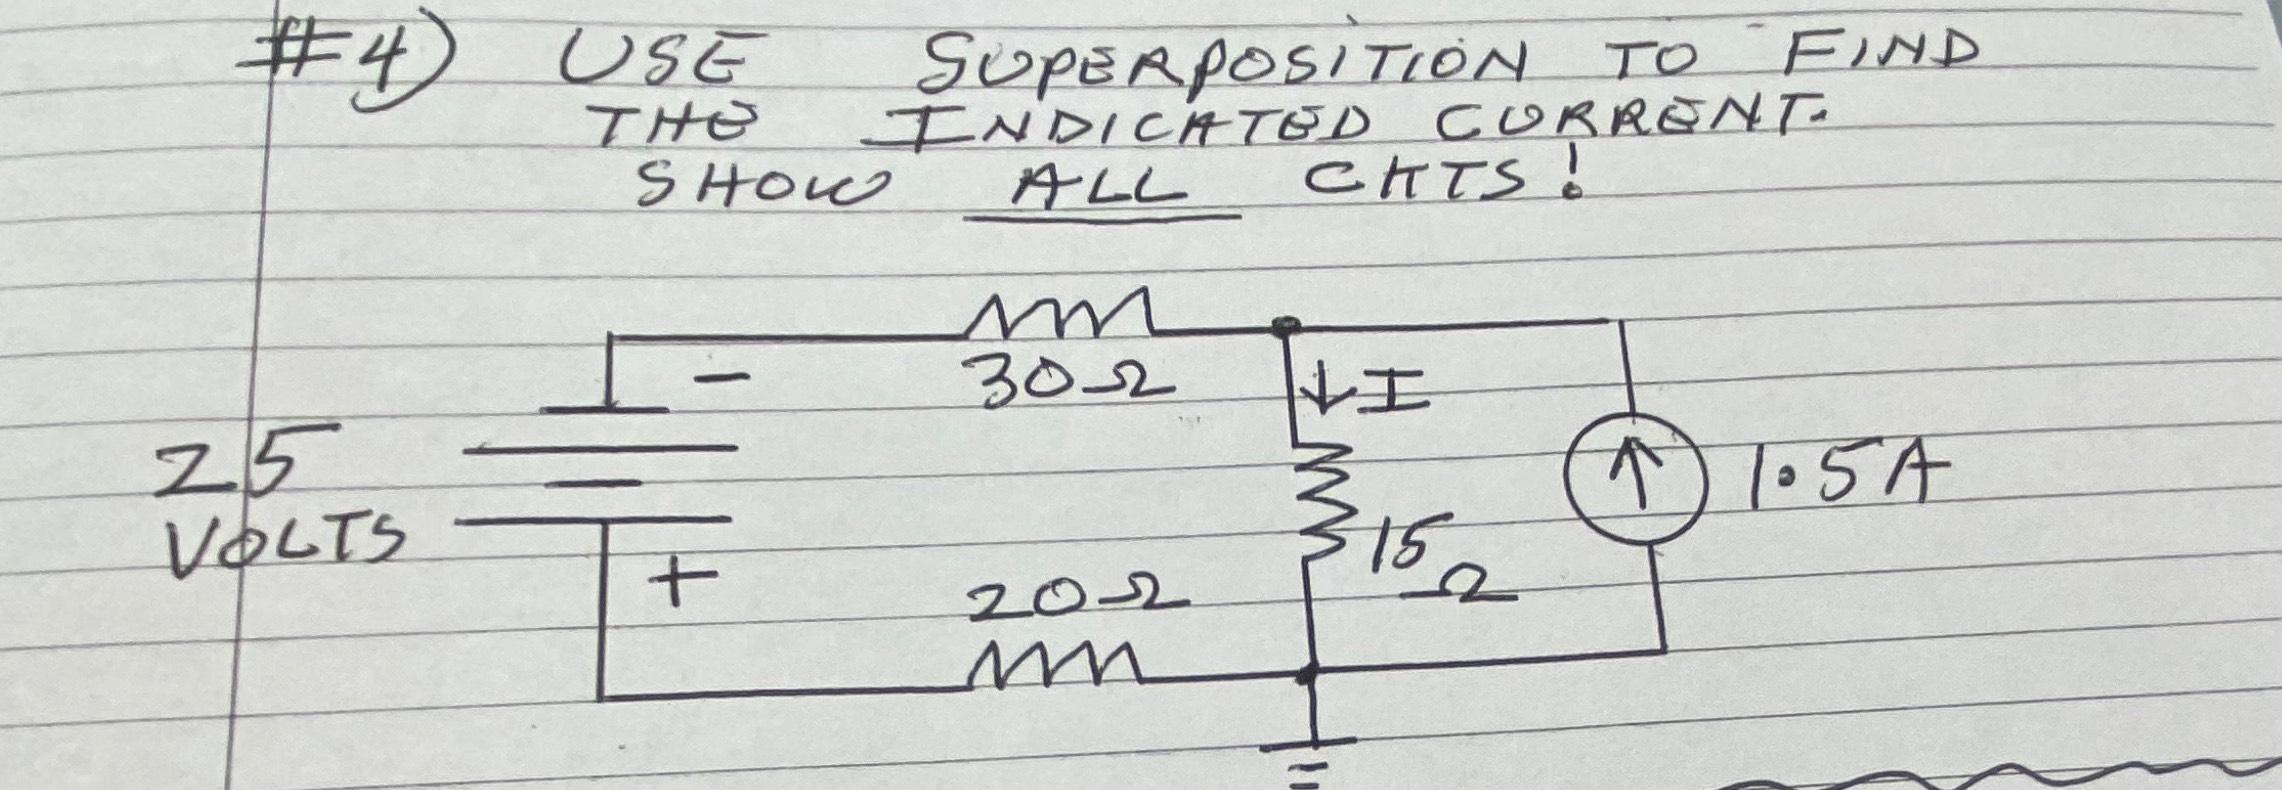 #4) USE SUPERPOSITION TO FIND
THE INDICATED CURRENT.
SHOW ALL CKTS!
-
30Ω
I
25
VOLTS
1.5A
15
Ω
+
20Ω